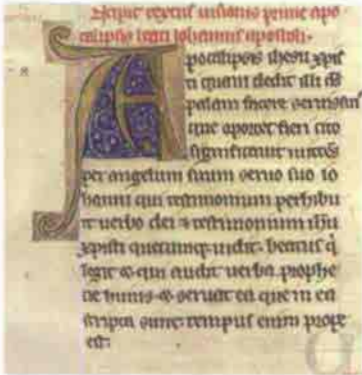 textus visionis prime apo
calipsis beati Iohannis apostoli.
Apocalipsis ihesu xpist
i quam dedit illi ds
palam facere seruis suis
que oportet fieri cito
significauit
per angelum suum seruo suo io
hanni qui testimonium perhibu
it uerbo dei & testimonium ihu
xpisti quecunq; uidit. beatus q
legit & qui audit uerba prophe
tie huius & seruat ea que in ea
scripta sunt. tempus enim prope
est.